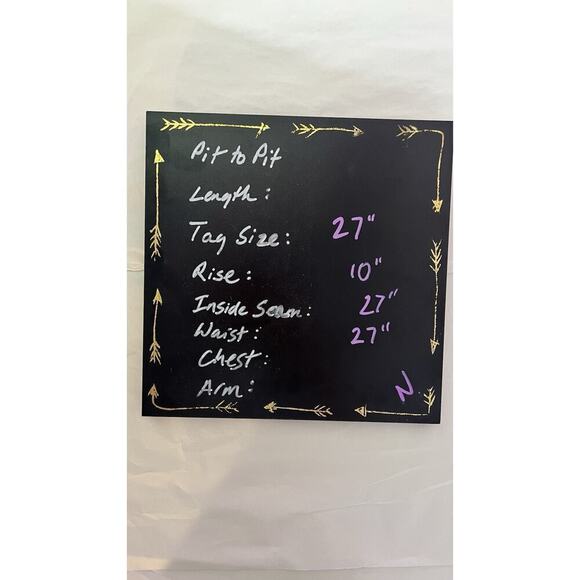 Pit to Pit
Length:
Tag Size: 27"
Rise: 10"
Inside Seam: 27"
Waist: 27"
Chest:
Arm:
N